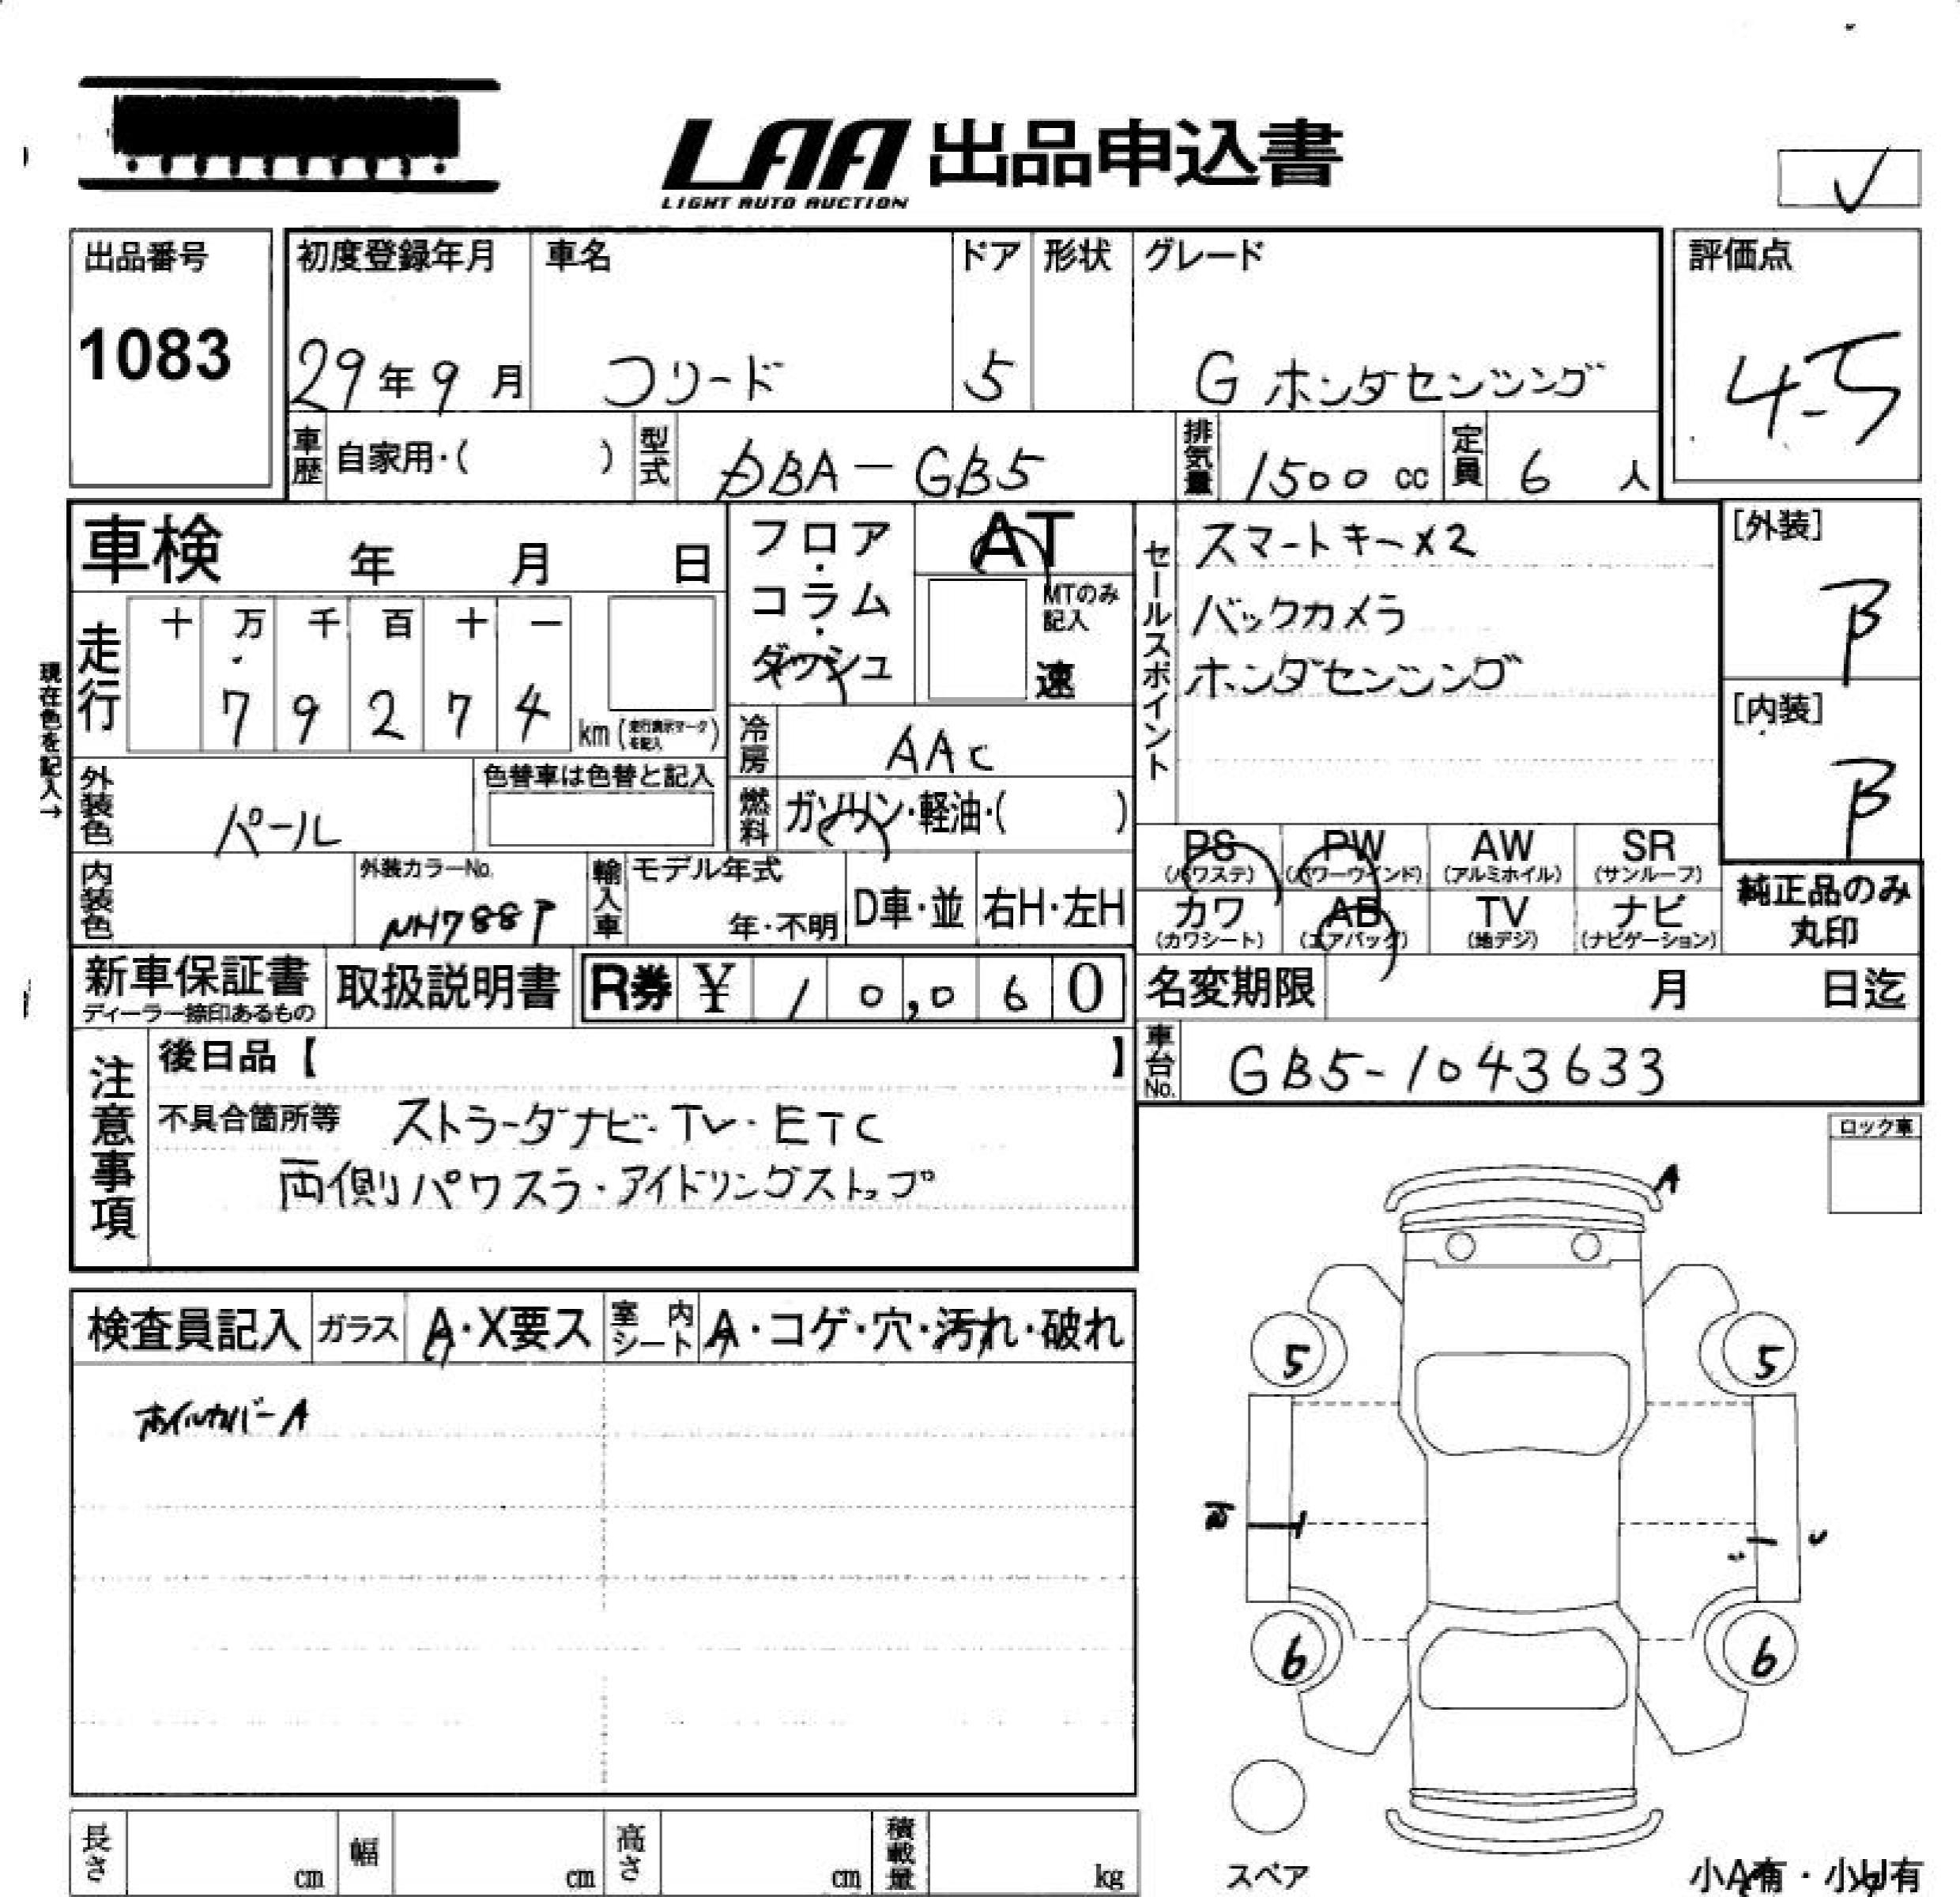 LAA 出品申込書
LIGHT AUTO AUCTION
出品番号
1083
初度登録年月
29年9月
車名
フリード
ドア
5
形状
グレード
G ホンダセンシング
評価点
4.5
車歴 自家用・( )
型式 DBA-GB5
排気量 1500 cc
定員 6 人
車検 年 月 日
フロア・コラム・ダッシュ
AT
MTのみ記入
速
セールスポイント
スマートキー×2
バックカメラ
ホンダセンシング
[外装]
B
[内装]
B
現在色を記入→
走行
十 万 千 百 十 一
7 9 2 7 4
km (走行表示マークを記入)
冷房 AAC
燃料 ガソリン・軽油・( )
外装色 パール
色替車は色替と記入
内装色
外装カラーNo.
NH788P
輸入車
モデル年式
年・不明
D車・並
右H・左H
PS (パワステ)
PW (パワーウインド)
AW (アルミホイル)
SR (サンルーフ)
カワ (カワシート)
AB (エアバッグ)
TV (地デジ)
ナビ (ナビゲーション)
純正品のみ丸印
新車保証書
ディーラー捺印あるもの
取扱説明書
R券 ¥ 10,060
名変期限 月 日迄
車台No. GB5-1043633
注意事項
後日品【 】
不具合箇所等 ストラーダナビ・TV・ETC
両側パワスラ・アイドリングストップ
ロック車
検査員記入
ガラス A・X要ス
室内シート A・コゲ・穴・汚れ・破れ
ホイルカバーA
A
5 5
6 6
スペア
小A有・小U有
長さ cm
幅 cm
高さ cm
積載量 kg